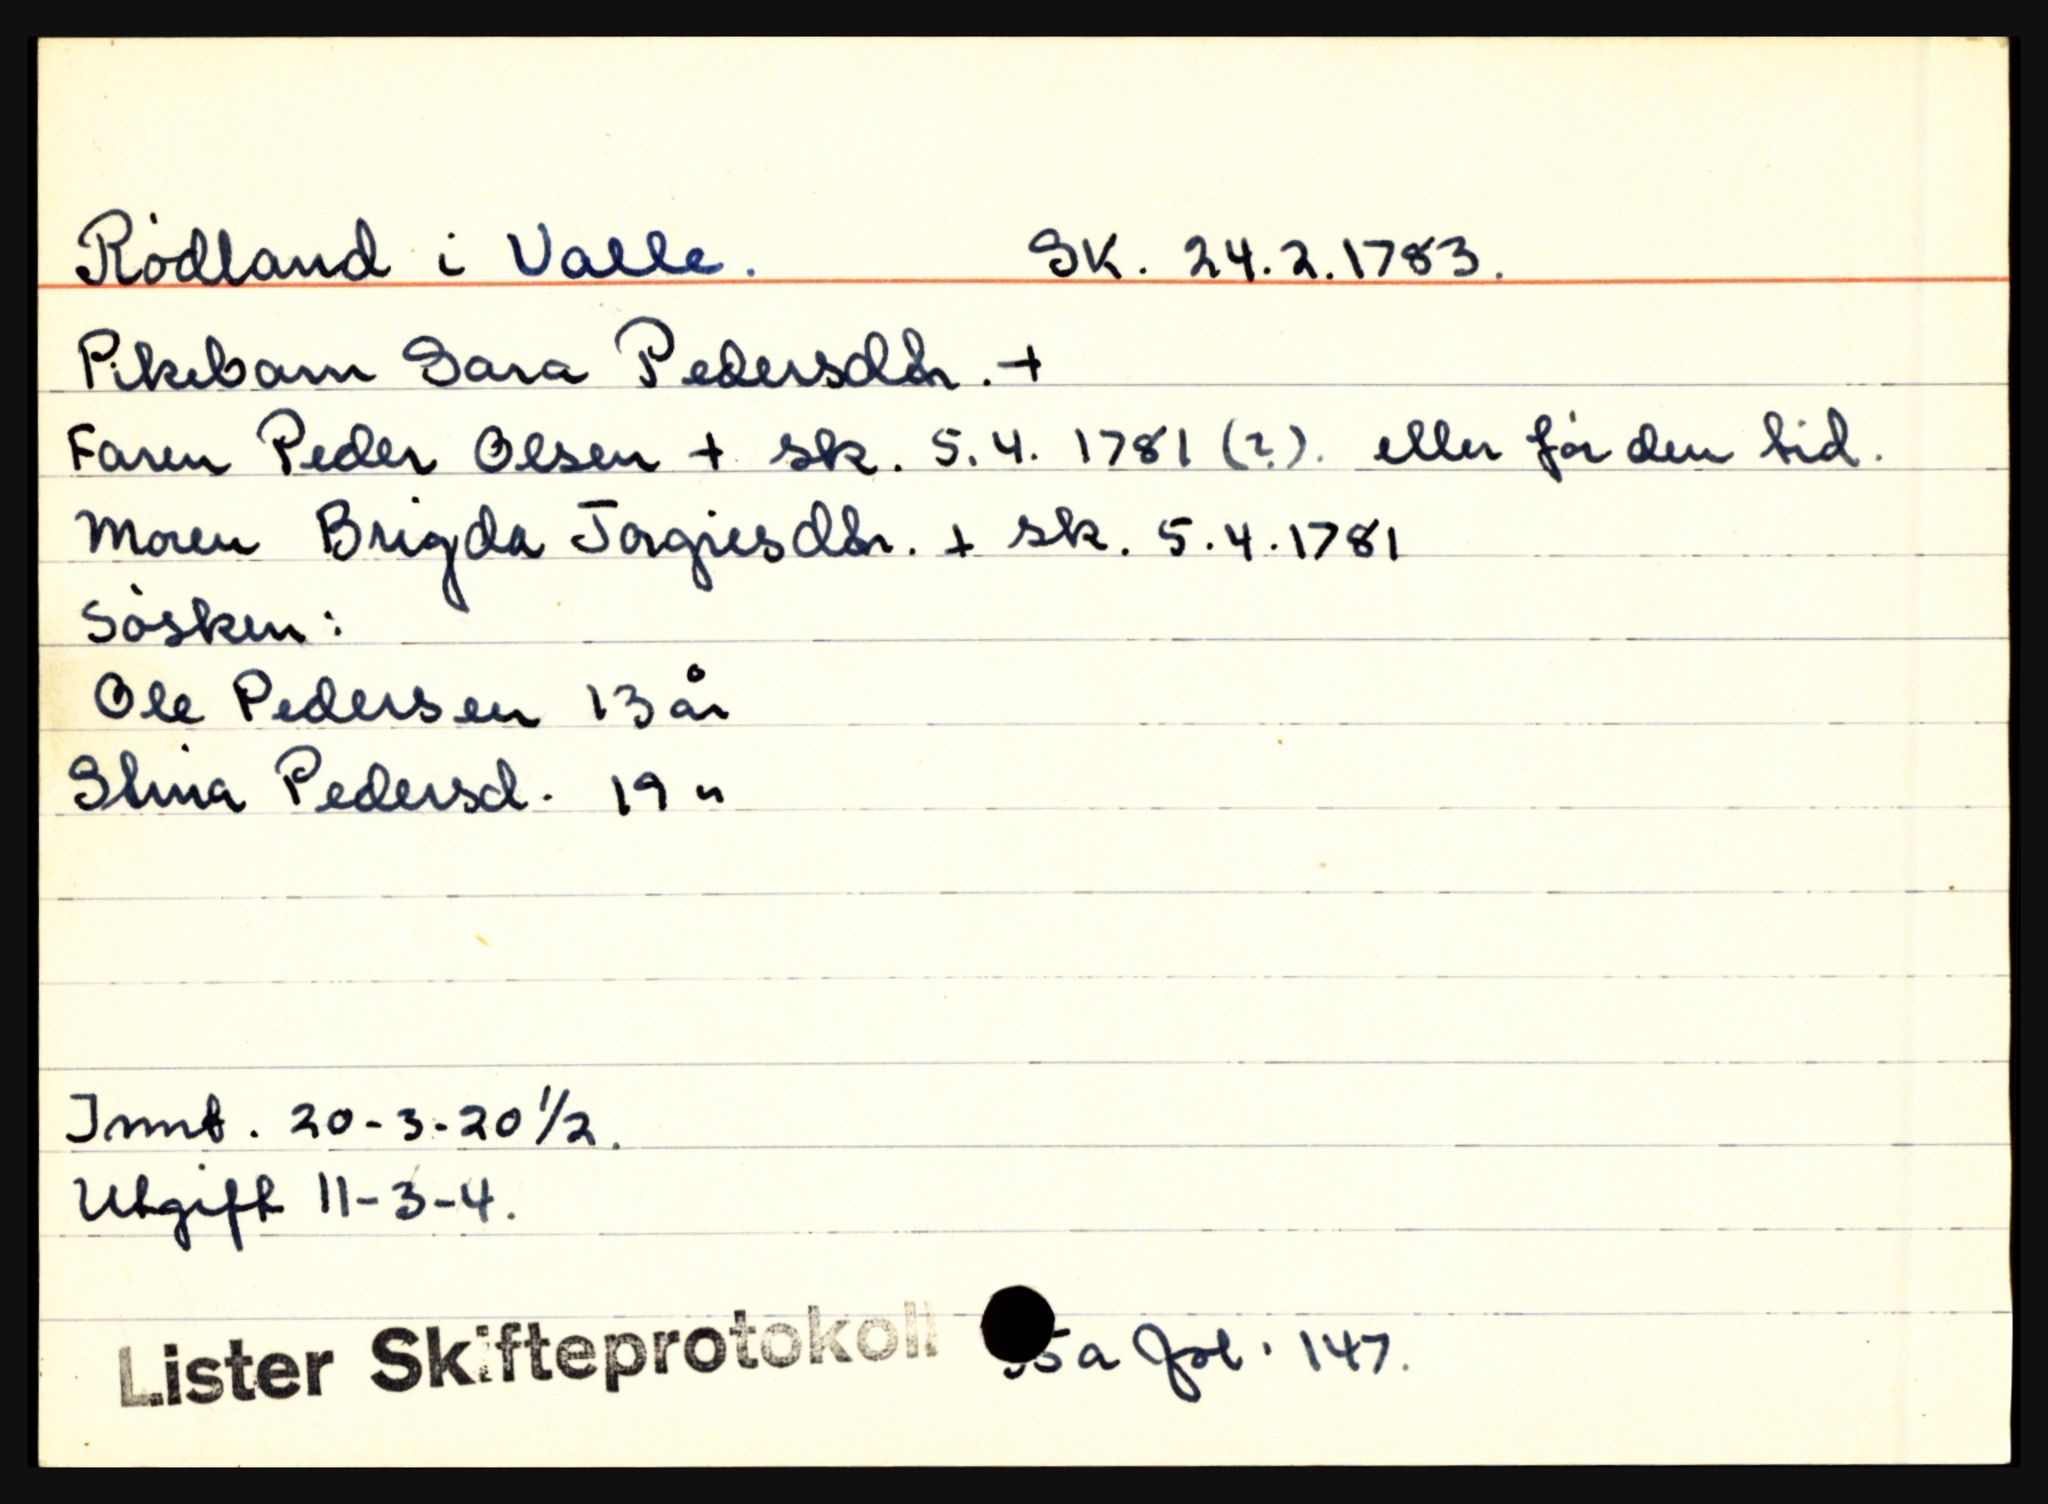 Rödland i Valle. SK. 24.2.1783.
Pikebarn Sara Pedersdtr. +
Faren Peder Olsen + sk. 5.4. 1781 (?). eller før den tid.
Moren Brigda Torgiesdtr. + sk. 5.4.1781
Søsken:
Ole Pedersen 13 år
Stina Pedersd. 19 "
Innt. 20-3-20 1/2.
Utgift 11-3-4.
Lister Skifteprotokoll 5a fol. 147.